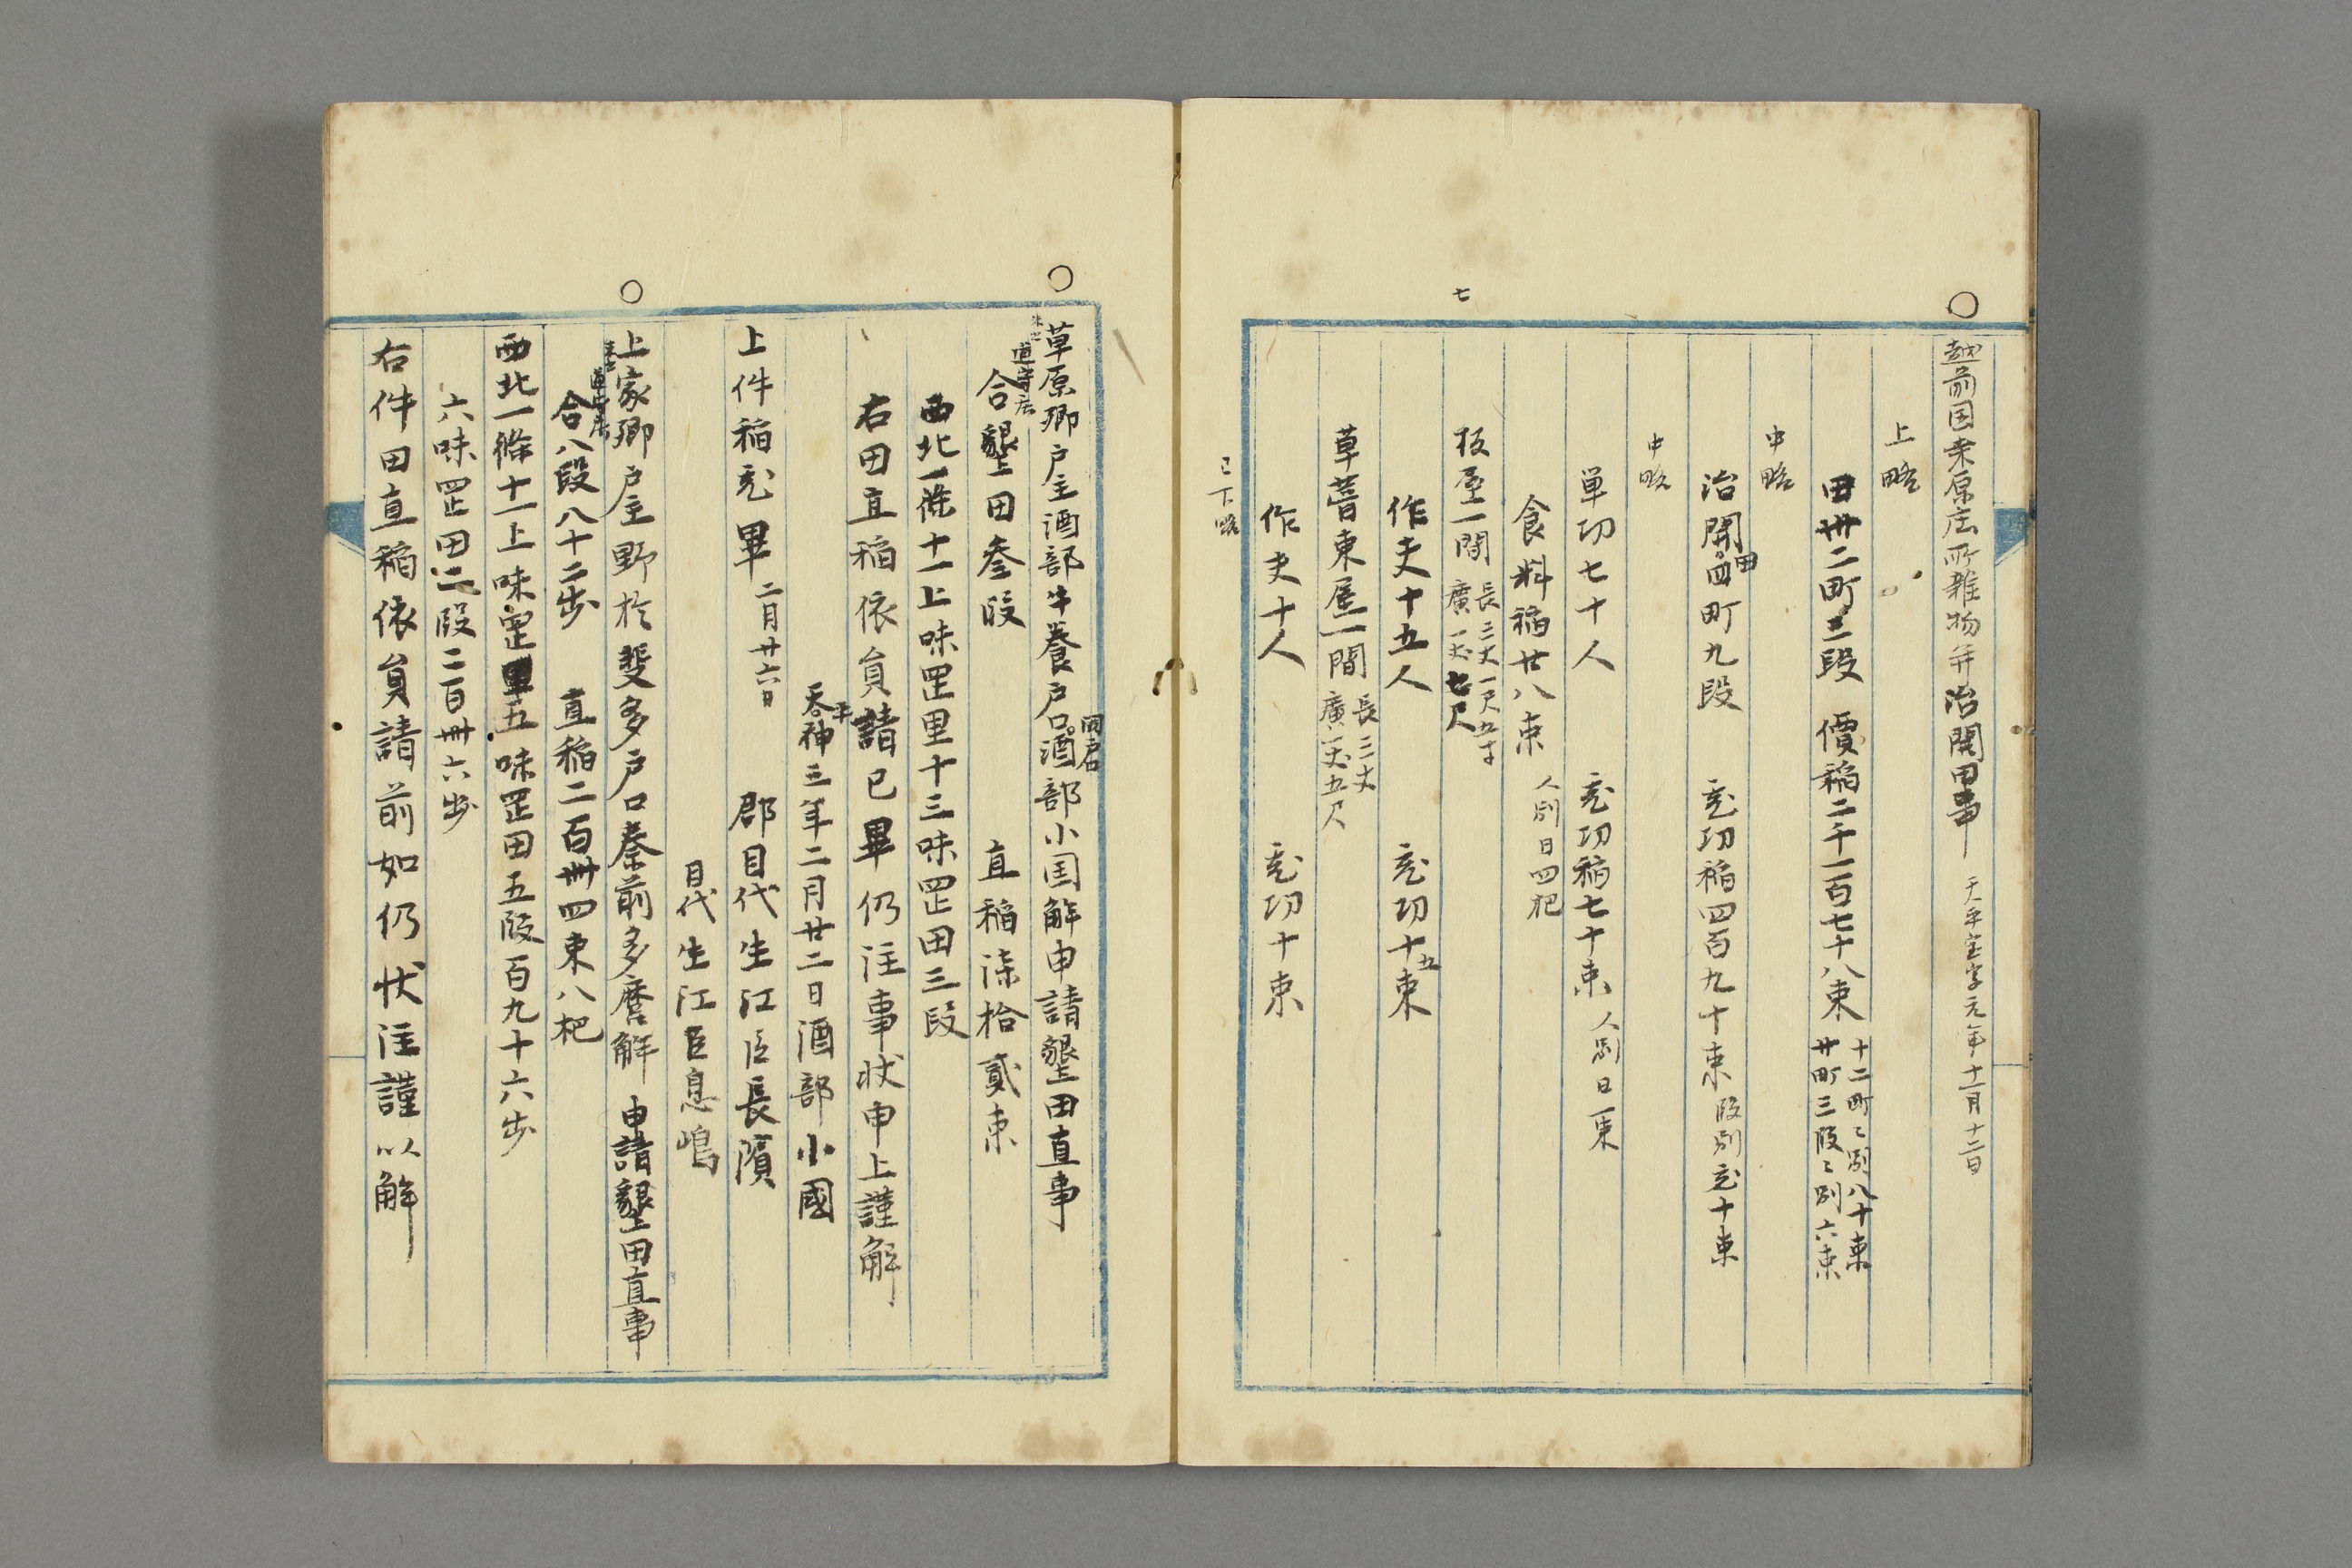 越前国桒原庄所雜物并治開田事 天平宝字元年十一月十二日
上略
田卌二町三段 價稲二千一百七十八束 十二町〻別八十束
廿町三段〻別六束
中略
治開田四町九段 充功稲四百九十束 段別充十束
中略
単功七十人 充功稲七十束 人別日一束
食料稲廿八束 人別日四把
七
板屋一間 長三丈一尺五寸
廣一丈七尺
作夫十五人 充功十五束
草葺東屋一間 長三丈
廣一丈五尺
作夫十人 充功十束
已下略
草原郷戸主酒部牛養戸口同戸口酒部小国解申請墾田直事
道守庄
合墾田叁段 直稲漆拾貳束
西北一條十一上味罡里十三味罡田三段
右田直稲依員請已畢仍注事状申上謹解
天平神三年二月廿二日酒部小國
上件稲充畢 二月廿六日 郡目代生江臣長濱
目代生江臣息嶋
上家郷戸主野於斐多戸口秦前多麿解 申請墾田直事
道守庄
合八段八十二步 直稲二百卌四束八把
西北一條十一上味罡里五味罡田五段百九十六步
六味罡田二段二百卌六步
右件田直稲依員請前如仍状注謹以解